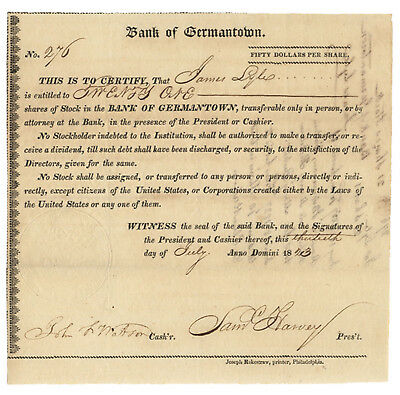 Bank of Germantown.
No. 276
FIFTY DOLLARS PER SHARE.
THIS IS TO CERTIFY, That James
is entitled to TWENTY ONE
shares of Stock in the BANK OF GERMANTOWN, transferable only in person, or by
attorney at the Bank, in the presence of the President or Cashier.
No Stockholder indebted to the Institution, shall be authorized to make a transfer, or re-
ceive a dividend, till such debt shall have been discharged, or security, to the satisfaction of the
Directors, given for the same.
No Stock shall be assigned, or transferred to any person or persons, directly or indi-
rectly, except citizens of the United States, or Corporations created either by the Laws of
the United States or any one of them.
WITNESS the seal of the said Bank, and the Signatures of
the President and Cashier thereof, this thirtieth
day of July Anno Domini 1843
John F Watson Cash'r. Saml Harvey Pres't.
Joseph Rakestraw, printer, Philadelphia.